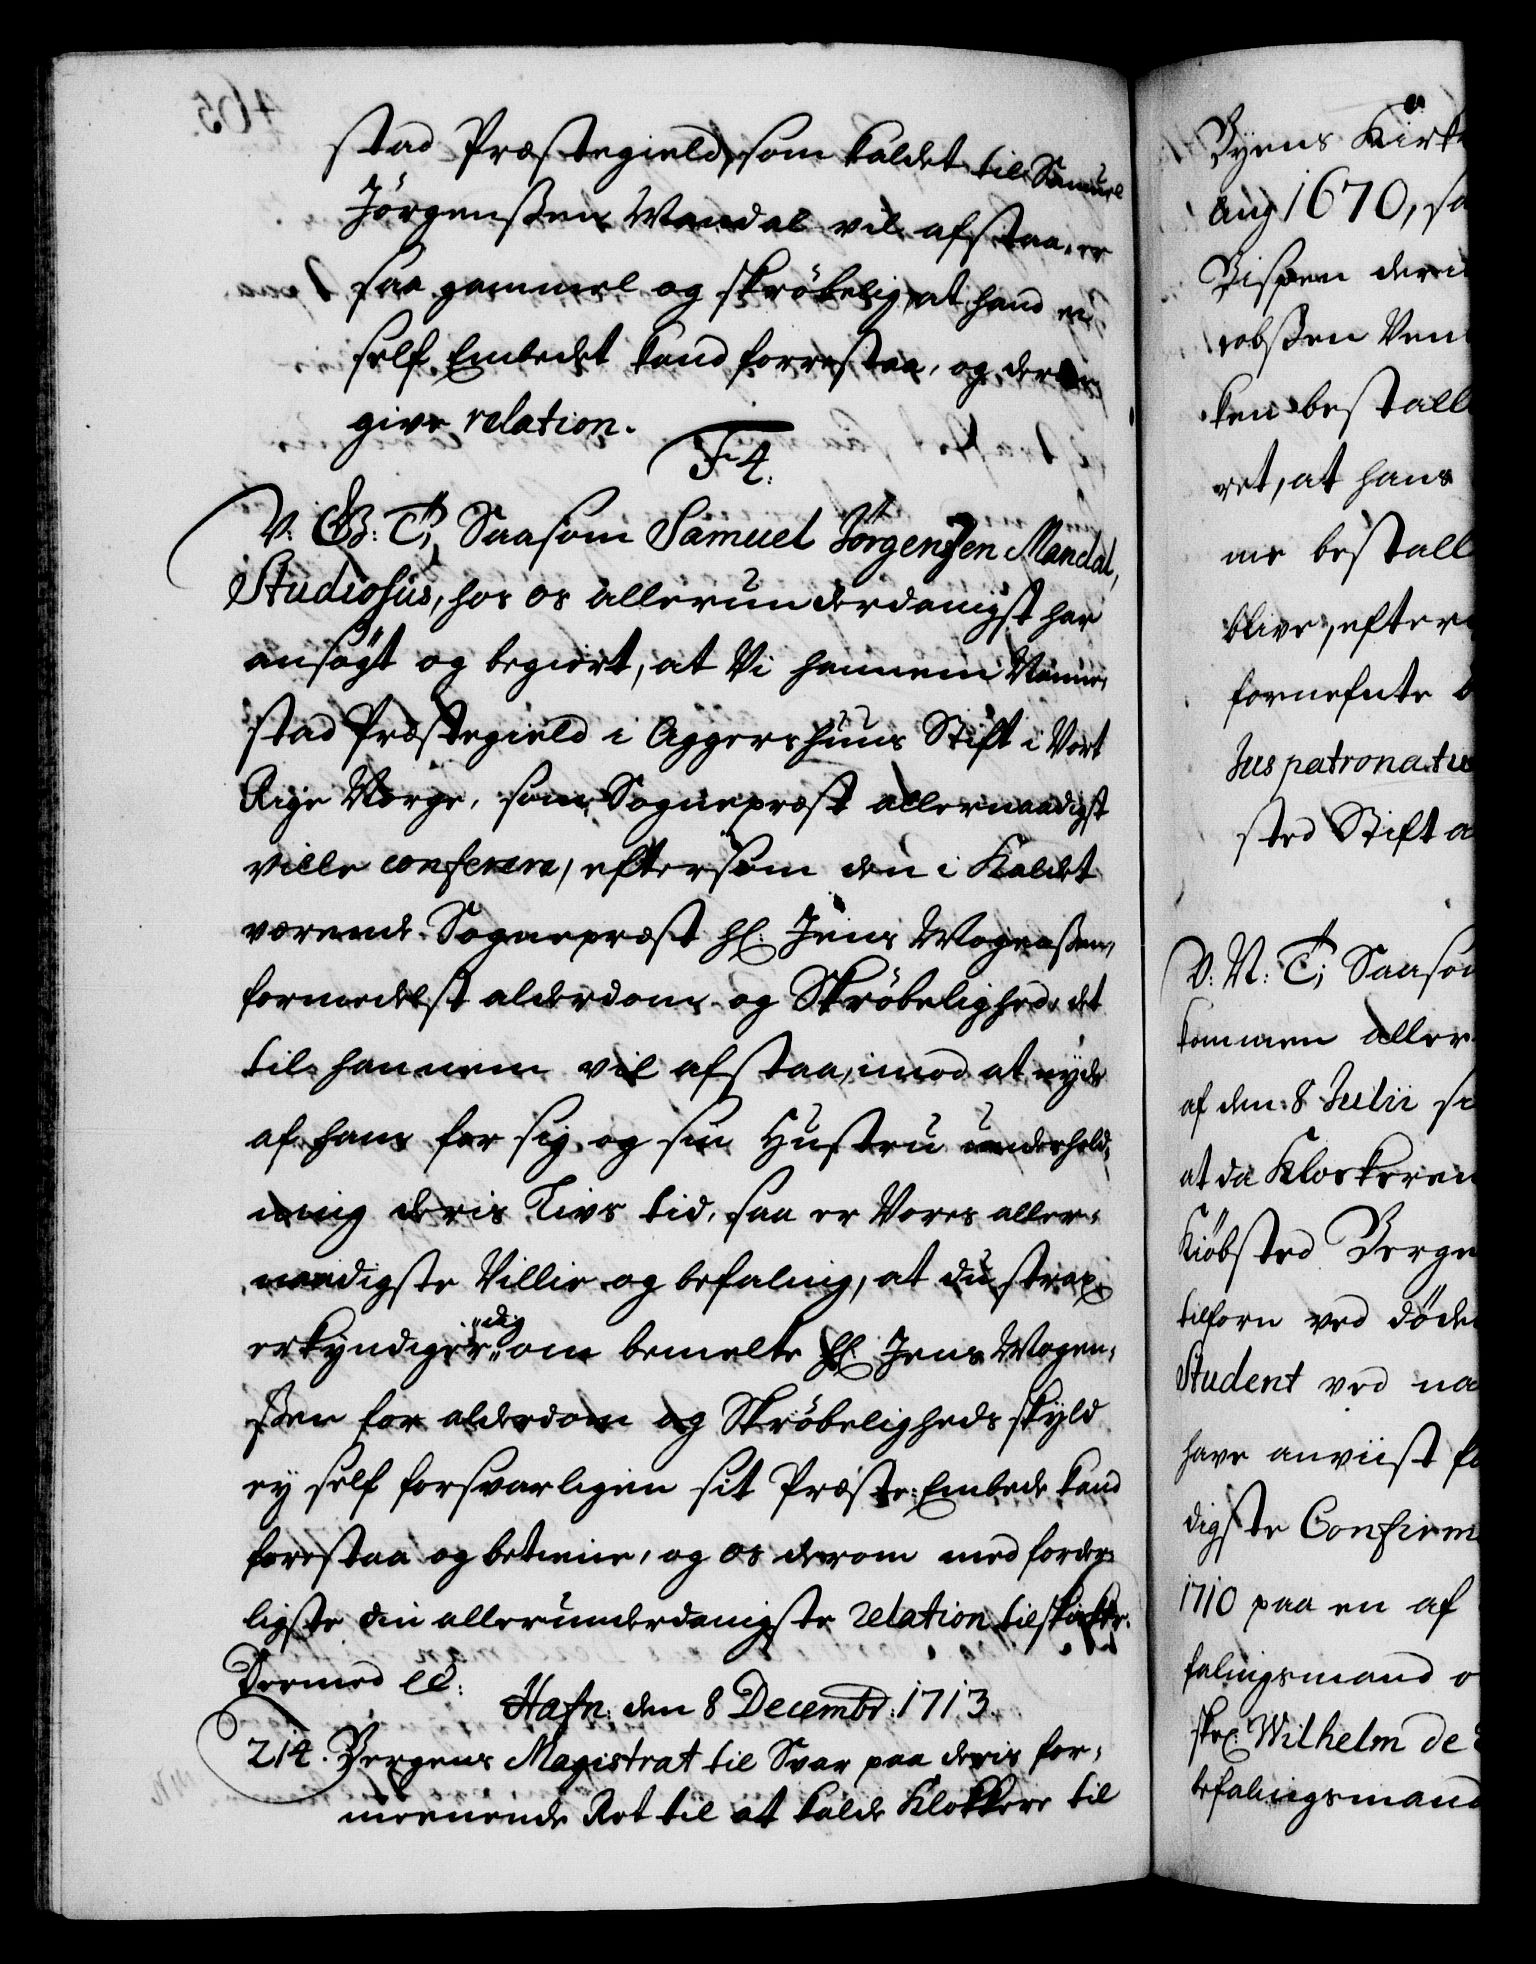 stad Præstegield, som kaldet til Samuel
Jörgenssen Mandal vil afstaa, er
saa gammel og skröbelig, at hand ei
self Embedet kand forrestaa, og derom
give relation.
F4.
V. G: T; Saasom Samuel Jörgenssen Mandal,
Studiosus, hos os allerunderdanigst har
ansögt og begiert, at Vi hannem Nanne-
stad Præstegield i Aggershuus Stift i Vort
Rige Norge, som Sognepræst allernaadigst
ville conferere, eftersom den i Kaldet
værende Sognepræst hr. Jens Mogenssen,
formedelst alderdom og Skröbelighed, det
til hannem vil afstaa, imod at nyde
af ham for sig og sin Hustru underhold-
ning deris Livs tid, saa er Vores aller-
naadigste Villie og befaling, at du strax
erkyndiger dig om bemelte hr. Jens Mogen-
ssen for alderdom og Skröbeligheds skyld
ey self forsvarligen sit Præste-Embede kand
forestaa og betiene, og os derom med forder-
ligste din allerunderdanigste relation tilskicker.
Dermed etc:
Hafn: den 8 Decembr: 1713.
214. Bergens Magistrat til Svar paa deris for-
meenende Ret til at kalde Klokkere til
Byens Kirk
Aug 1670, sa
Bispen der
robssen Ven
ken bestall
ret, at hans
me bestall
blive, efter
fornefnte
Jus patronatus
sted Stift a
V. N: T; Saasom
kommen aller
af den 8 Julii
at da Klockeren
Kiöbsted Berge
tilforn ved döde
Student ved na
have anviist
digste Confirm
1710 paa en af
falingsmand o
Wilhelm de
befalingsmand